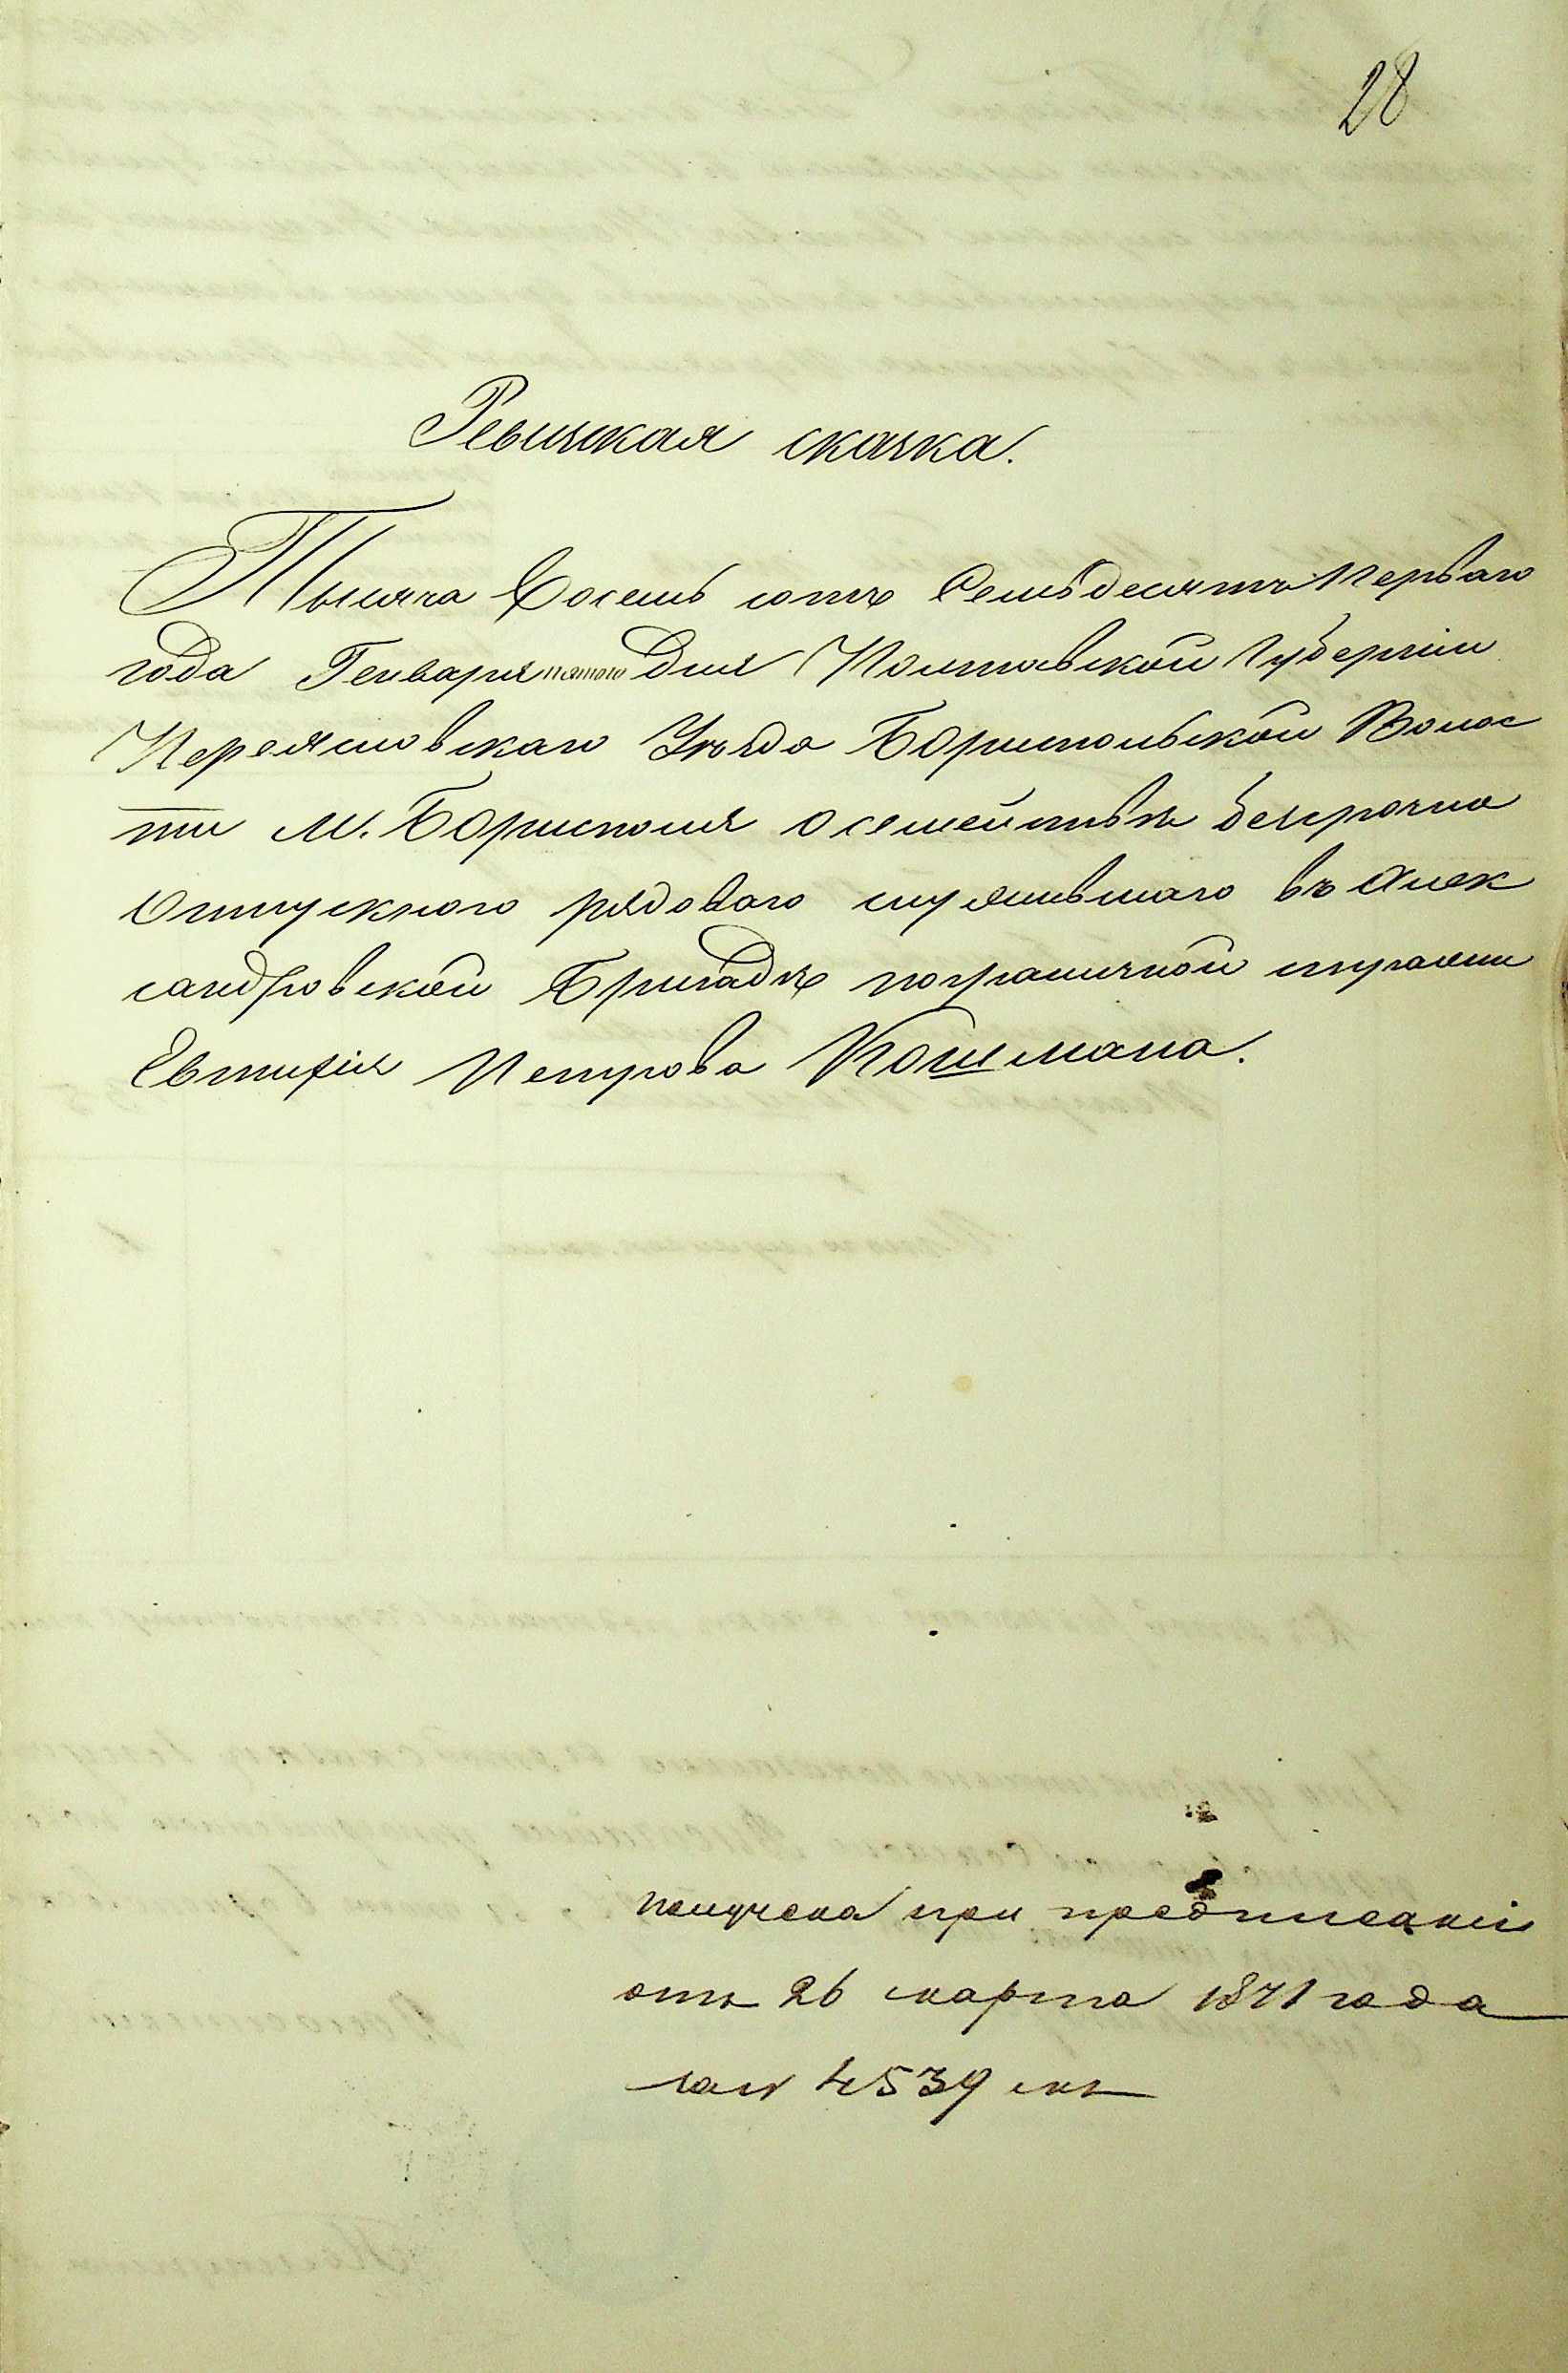 28
Ревизская сказка.
Тысяча Восемь сотъ Семьдесятъ Перваго
года Генваря пятого дня Полтавской Губерніи
Переясловскаго Уѣзда Бориспольской Волос
ти М. Борисполя о семействѣ безсрочно
Отпускного рядоваго служившаго въ Алек
сандровской Бригадѣ пограничной стражи
Евтифія Петрова Кошмана.
получена при предписаніи
отъ 26 марта 1871 года
за № 4539 мъ